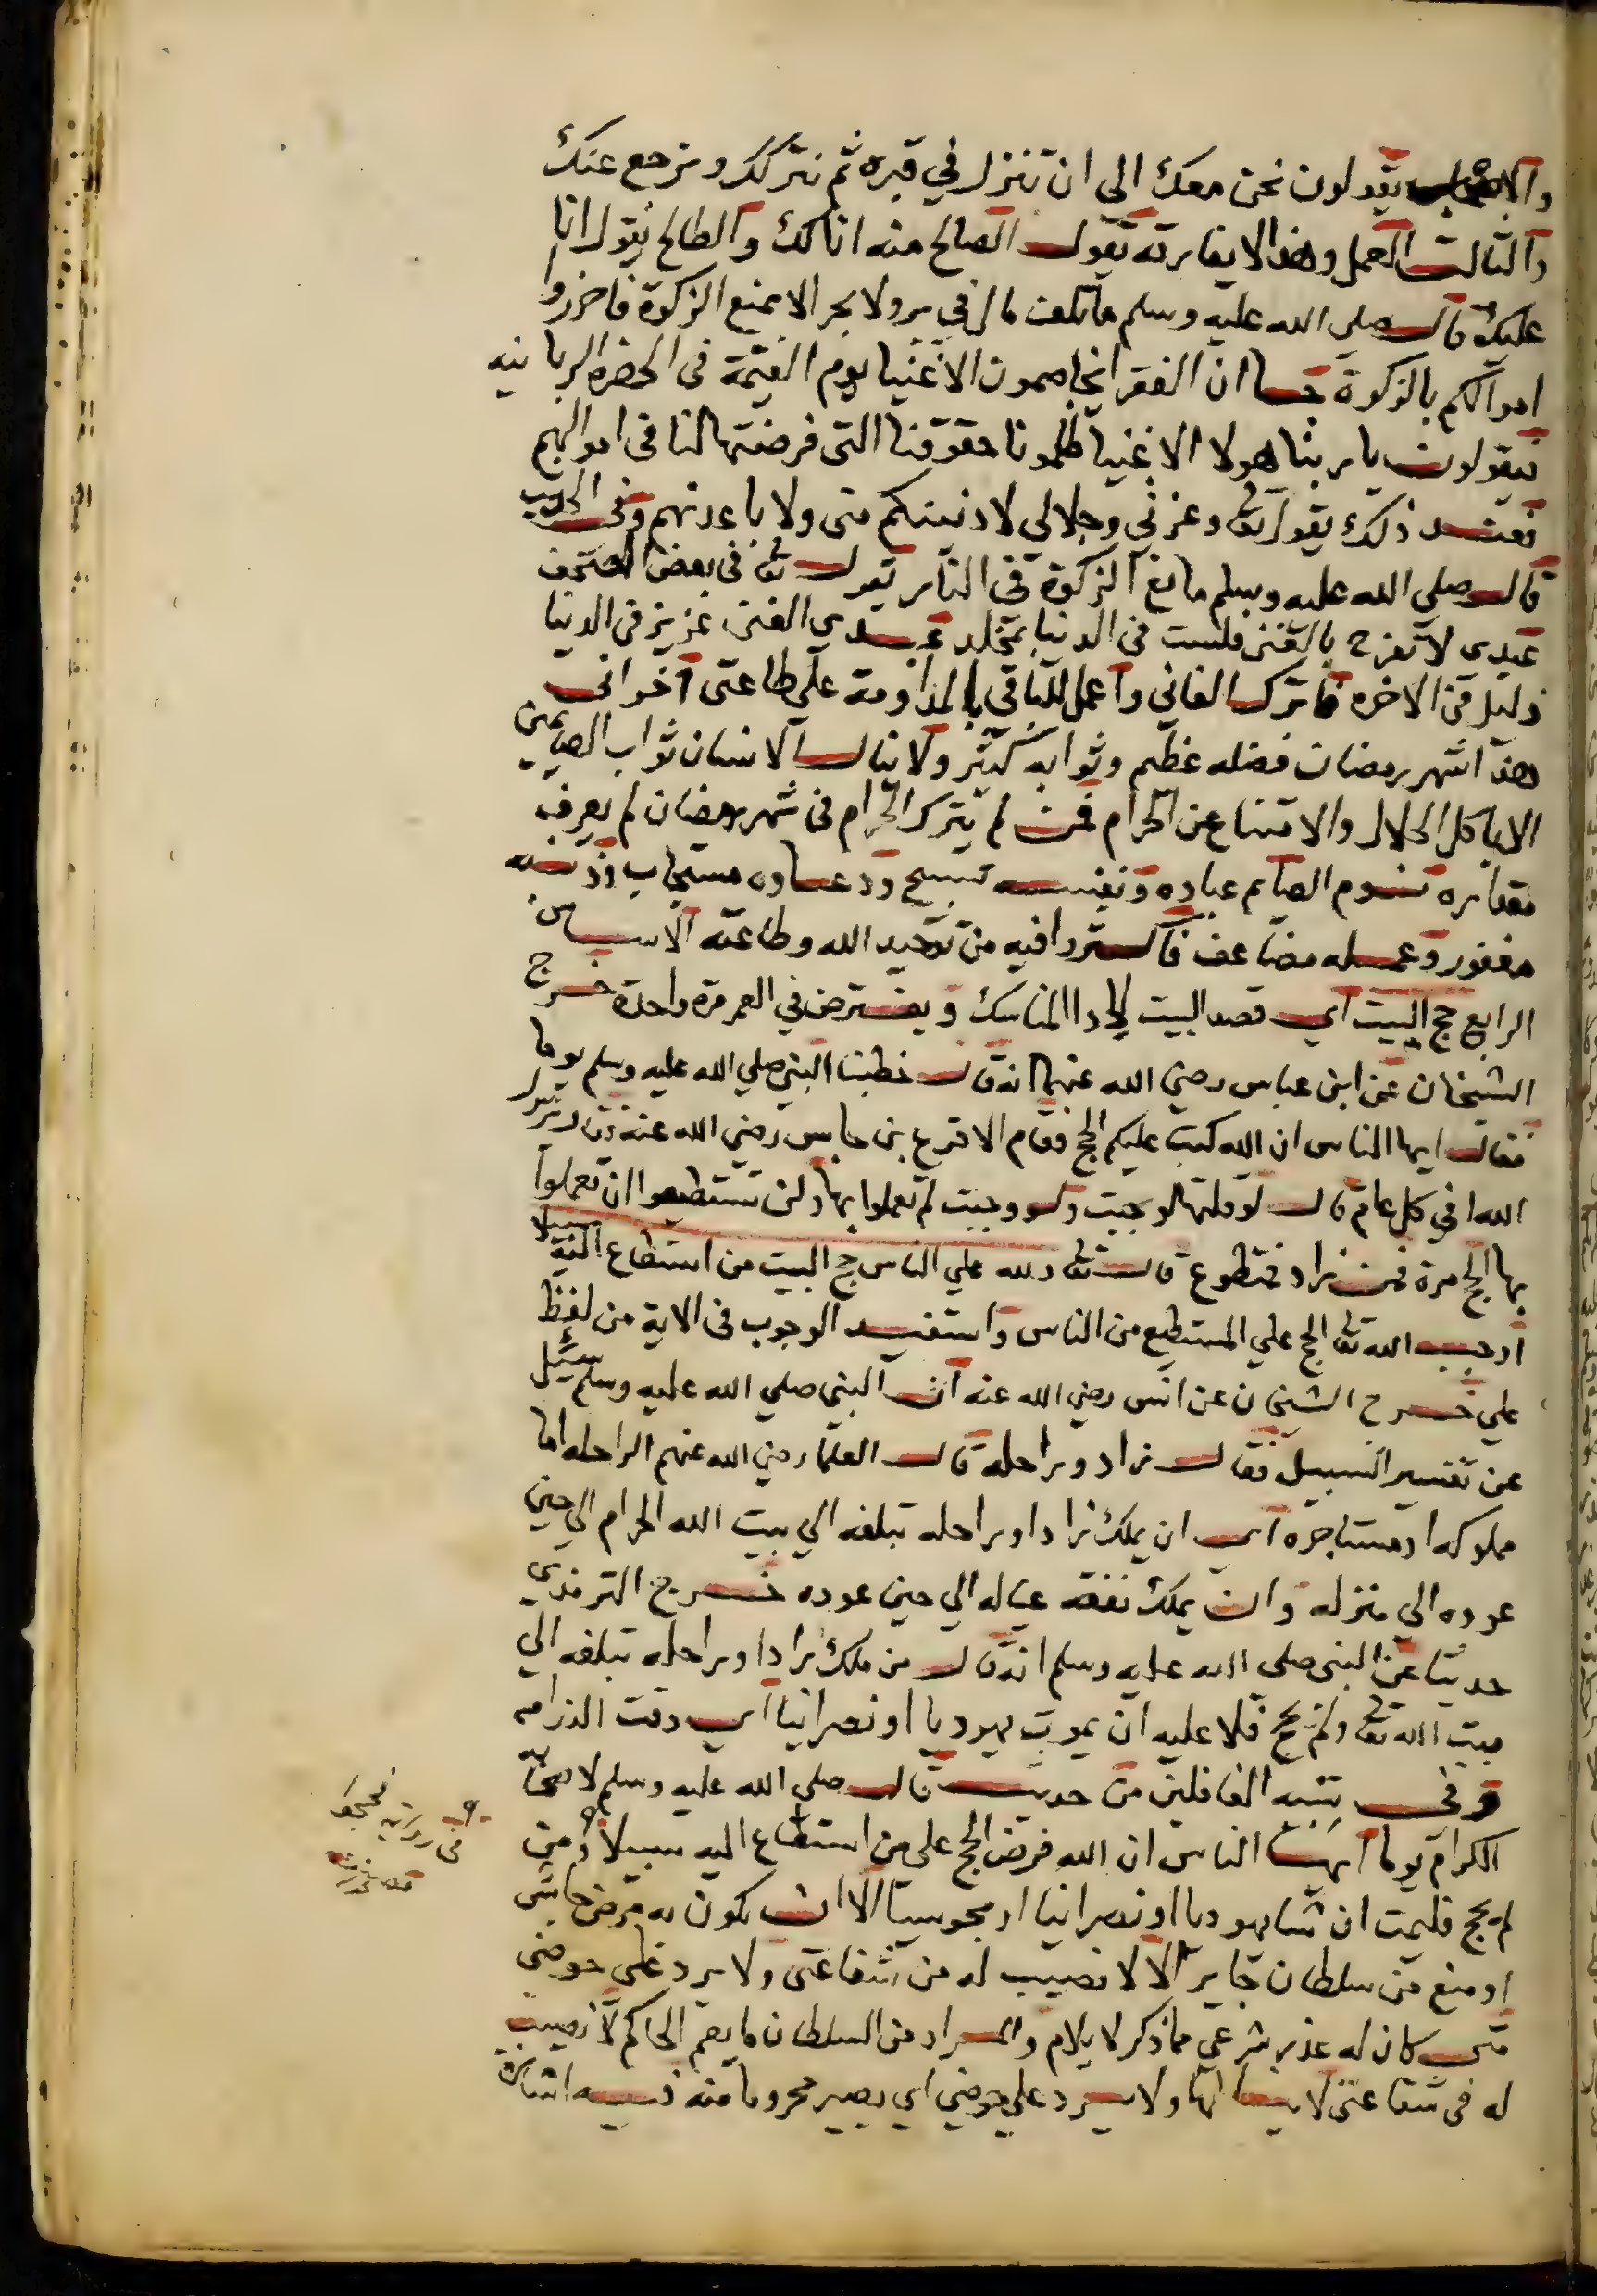 والاصحاب يقولون نحن معك الى ان تنزل في قبره ثم نتركك ونرجع عنك
والثالث العمل وهذا لا يفارقه يقول الصالح منه انا لك والطالح يقول انا
عليك قال صلى الله عليه وسلم ما تلفت مال في بر ولا بحر الا بمنع الزكوة فاحرزوا
اموالكم بالزكوة جا ان الفقرا يخاصمون الاغنيا يوم القيمة في الحضره الربانيه
فيقولون يا ربنا هولا الاغنيا ظلمونا حقوقنا التي فرضتها لنا في اموالهم
فعند ذلك يقول تعالى وعزتي وجلالي لادنينكم مني ولاباعدنهم وفي الحديث
قال صلى الله عليه وسلم مانع الزكوة في النار يقول تعالى في بعض الصحف
عبدي لا تفرح بالغنى فلست في الدنيا بمخلد عبدي الغني عزيز في الدنيا
ذليل في الاخره فاترك الفاني واعمل للباقي بالمداومة على طاعتي اخواني
هذا شهر رمضان فضله عظيم وثوابه كثير ولا ينال الانسان ثواب الصايمين
الا باكل الحلال والامتناع عن الحرام فمن لم يترك الحرام في شهر رمضان لم يعرف
مقداره نوم الصايم عباده ونفسه تسبيح ودعاوه مستجاب وذنبه
مغفور وعمله مضاعف فاكثروا فيه من توحيد الله وطاعته الاساس
الرابع حج البيت اي قصد البيت لادا المناسك ويفترض في العمر مرة واحدة خرج
الشيخان عن ابن عباس رضي الله عنهما انه قال خطبنا النبي صلي الله عليه وسلم يوما
فقال ايها الناس ان الله كتب عليكم الحج فقام الاقرع بن حابس رضي الله عنه وقال يرسول
الله افي كل عام قال لو قلتها لوجبت ولو وجبت لم تعملوا بها ولن تستطيعوا ان تعملوا
بها الحج مرة فمن زاد فتطوع قال تعالى ولله علي الناس حج البيت من استطاع اليه سبيلا
اوجب الله تعالى الحج علي المستطيع من الناس واستفيد الوجوب في الاية من لفظ
علي خرج الشيخان عن انس رضي الله عنه ان النبي صلي الله عليه وسلم سئل
عن تفسير السبيل فقال زاد وراحلة قال العلما رضي الله عنهم الراحله اما
مملوكه او مستاجره اي ان يملك زادا وراحله تبلغه الي بيت الله الحرام الي حين
عوده الي منزله وان يملك نفقه عياله الي حين عوده خرج الترمذي
حديثا عن النبي صلى الله عليه وسلم انه قال من ملك زادا وراحله تبلغه الي
بيت الله تعالى ولم يحج فلا عليه ان يموت يهوديا او نصرانيا اي وقت النزاع
وفي تنبيه الغافلين من حديث قال صلي الله عليه وسلم لاصحابه
الكرام يوما ايها الناس ان الله فرض الحج علي من استطاع اليه سبيلا ومن
لم يحج فليمت ان شا يهوديا او نصرانيا او مجوسيا الا ان يكون به مرض حابس
او منع من سلطان جاير الا لا نصيب له من شفاعتي ولا يرد علي حوضي
متى كان له عذر شرعي مما ذكر لا يلام والمراد من السلطان ما يعم الحاكم لا نصيب
له في شفاعتي لا ينالها ولا يرد علي حوضي اي يصير محروما منه فيه اشارة
في رواية فحجوا